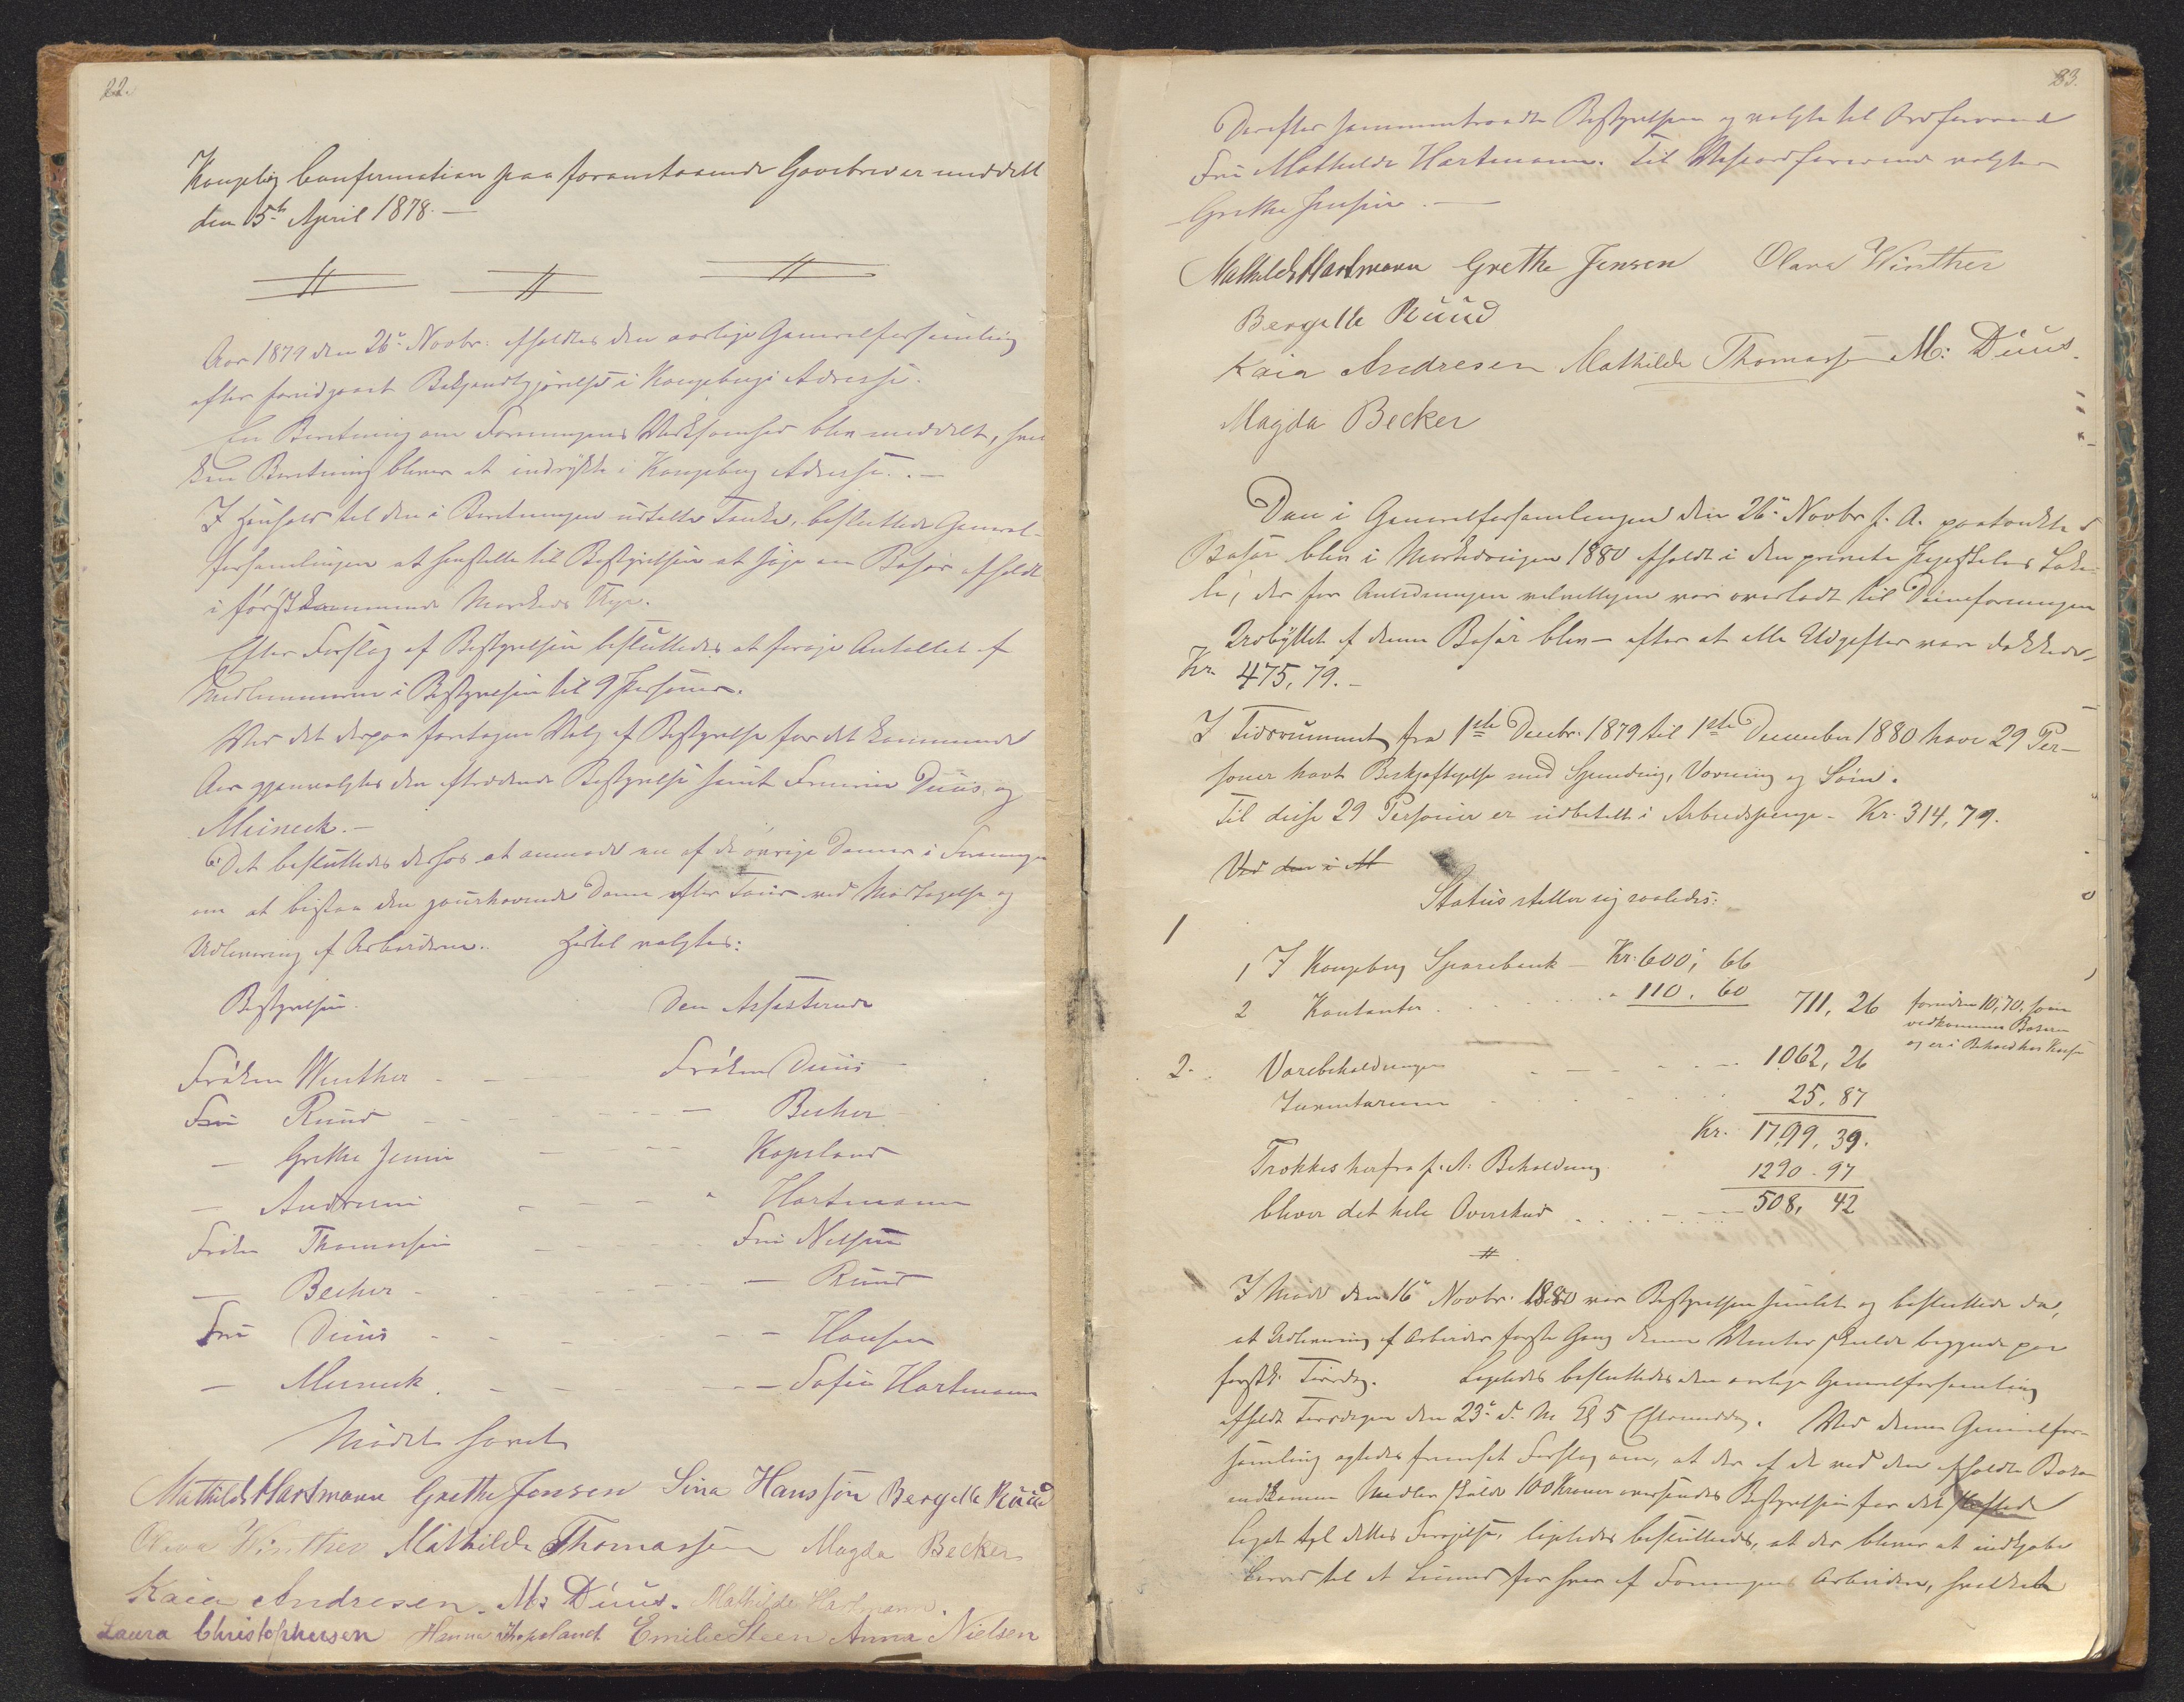 22.
Kongelig Confirmation paa foranstaaende Gavebrev er meddelt
den 5te April 1878. —
Aar 1879 den 26de Novbr. afholdtes den aarlige Generalforsamling
efter forudgaaet Bekjendtgjørelse i Kongsbergs Adresse.
En Beretning om Foreningens Virksomhed blev meddelt, hvil
ken Beretning bliver at indrykke i Kongsberg Adresse. —
I Henhold til den i Beretningen udtalte Tanke, besluttede General-
forsamlingen at henstille til Bestyrelsen at søge en Basar afholdt
i førstkommende Markeds Uge.
Efter Forslag af Bestyrelsen besluttedes at forøge Antallet af
Medlemmerne i Bestyrelsen til 9 Personer.
Ved det derpaa foretagne Valg af Bestyrelse for det kommende
Aar gjenvalgtes den aftrædende Bestyrelse samt Fruerne Duus og
Meineck. —
Det besluttedes derhos at anmode en af de øvrige Damer i Foreningen
om at bistaa den jourhavende Dame efter Tour ved Modtagelse og
Udlevering af Arbeiderne. Hertil valgtes:
Bestyrelsen. Den Assisterende
Frøken Winther - - Frøken Duus
Fru Ruud - - - Becker
— Grethe Jensen - - Kopsland
— Andresen - - " Hartmann
Frøken Thomassen - - Fru Nielsen
— Becker - - — Ruud
Fru Duus - - - Hansen
— Meineck. - - - Sofie Hartmann
Mødet hævet
Mathilde Hartmann Grethe Jensen Sina Hanssen Bergitte Ruud
Olava Winther Mathilde Thomassen Magda Becker
Kaia Andresen. M: Duus. Mathilde Hartmann.
Laura Christophersen Hanna Kopsland Emilie Steen Anna Nielsen
23.
Derefter sammentraadte Bestyrelsen og valgte til Ordførerinde
Fru Mathilde Hartmann. Til Viseordførerinde valgtes
Grethe Jensen. —
Mathilde Hartmann Grethe Jensen Olava Winther
Bergitte Ruud
Kaia Andresen Mathilde Thomassen M: Duus.
Magda Becker
Den i Generalforsamlingen den 26de Novbr f. A. paatænkte
Basar blev i Markedsugen 1880 afholdt i den private Pigeskoles Loka-
le, der for Anledningen velvilligen var overladt til Dameforeningen
Udbyttet af denne Basar blev — efter at alle Udgifter vare dækkede —
Kr. 475,79. —
I Tidsrummet fra 1ste Decbr. 1879 til 1ste December 1880 have 29 Per-
soner havt Beskjæftigelse med Spinding, Vævning og Søm.
Til disse 29 Personer er udbetalt i Arbeidspenge - Kr. 314,79.
Ved den i M
Status stiller sig saaledes:
1
1 I Kongsberg Sparebank — Kr. 600, 66
2 Kontanter . . . " 110. 60 711, 26 foruden 10,70, som
vedkommer Basaren
og er i Behold hos Kass
2. Varebeholdningen - - - 1062, 26
Inventarium . . . 25. 87
Kr. 1799. 39.
Trækkes herfra f. A. Beholdning 1290. 97
bliver det hele Overskud . . - - 508, 42
I Møde den 16de Novbr. 1880 var Bestyrelsen samlet og besluttede da,
at Udlevering af Arbeider første Gang denne Vinter skulde begynde paa
førstk. Tirsdag. Ligeledes besluttedes den aarlige Generalforsamling
afholdt Tirsdagen den 23de d. M. Kl 5 Eftermiddag. Ved denne Generalfor-
samling agtedes fremsat Forslag om, at der af de ved den afholdte Basar
indkomne Midler skulde 100 Kroner oversendes Bestyrelsen for det
Legat til dettes Forøgelse, ligeledes besluttedes, at der bliver at indkjøbe
til et Linned for hver af Foreningens Arbeidere, hvilket